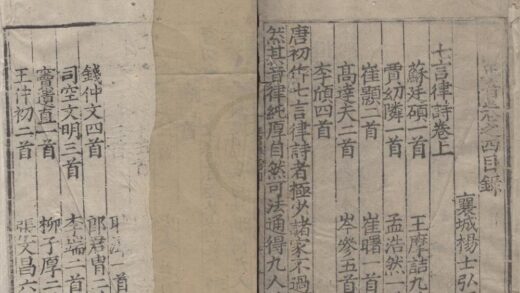 正音卷之四目錄
襄城楊士弘
七言律詩卷上
蘇廷碩一首 王摩詰九
賈幼隣一首 孟浩然一
崔顥一首 崔曙一首
高達夫二首 岑參五首
李頎四首
唐初作七言律詩者極少諸家不過
然其音律純厚自然可法通得九人
首
錢仲文四首 郎君冑二
司空文明三首 李端一首
竇遺直一首 柳子厚二
王仲初二首 張文昌六